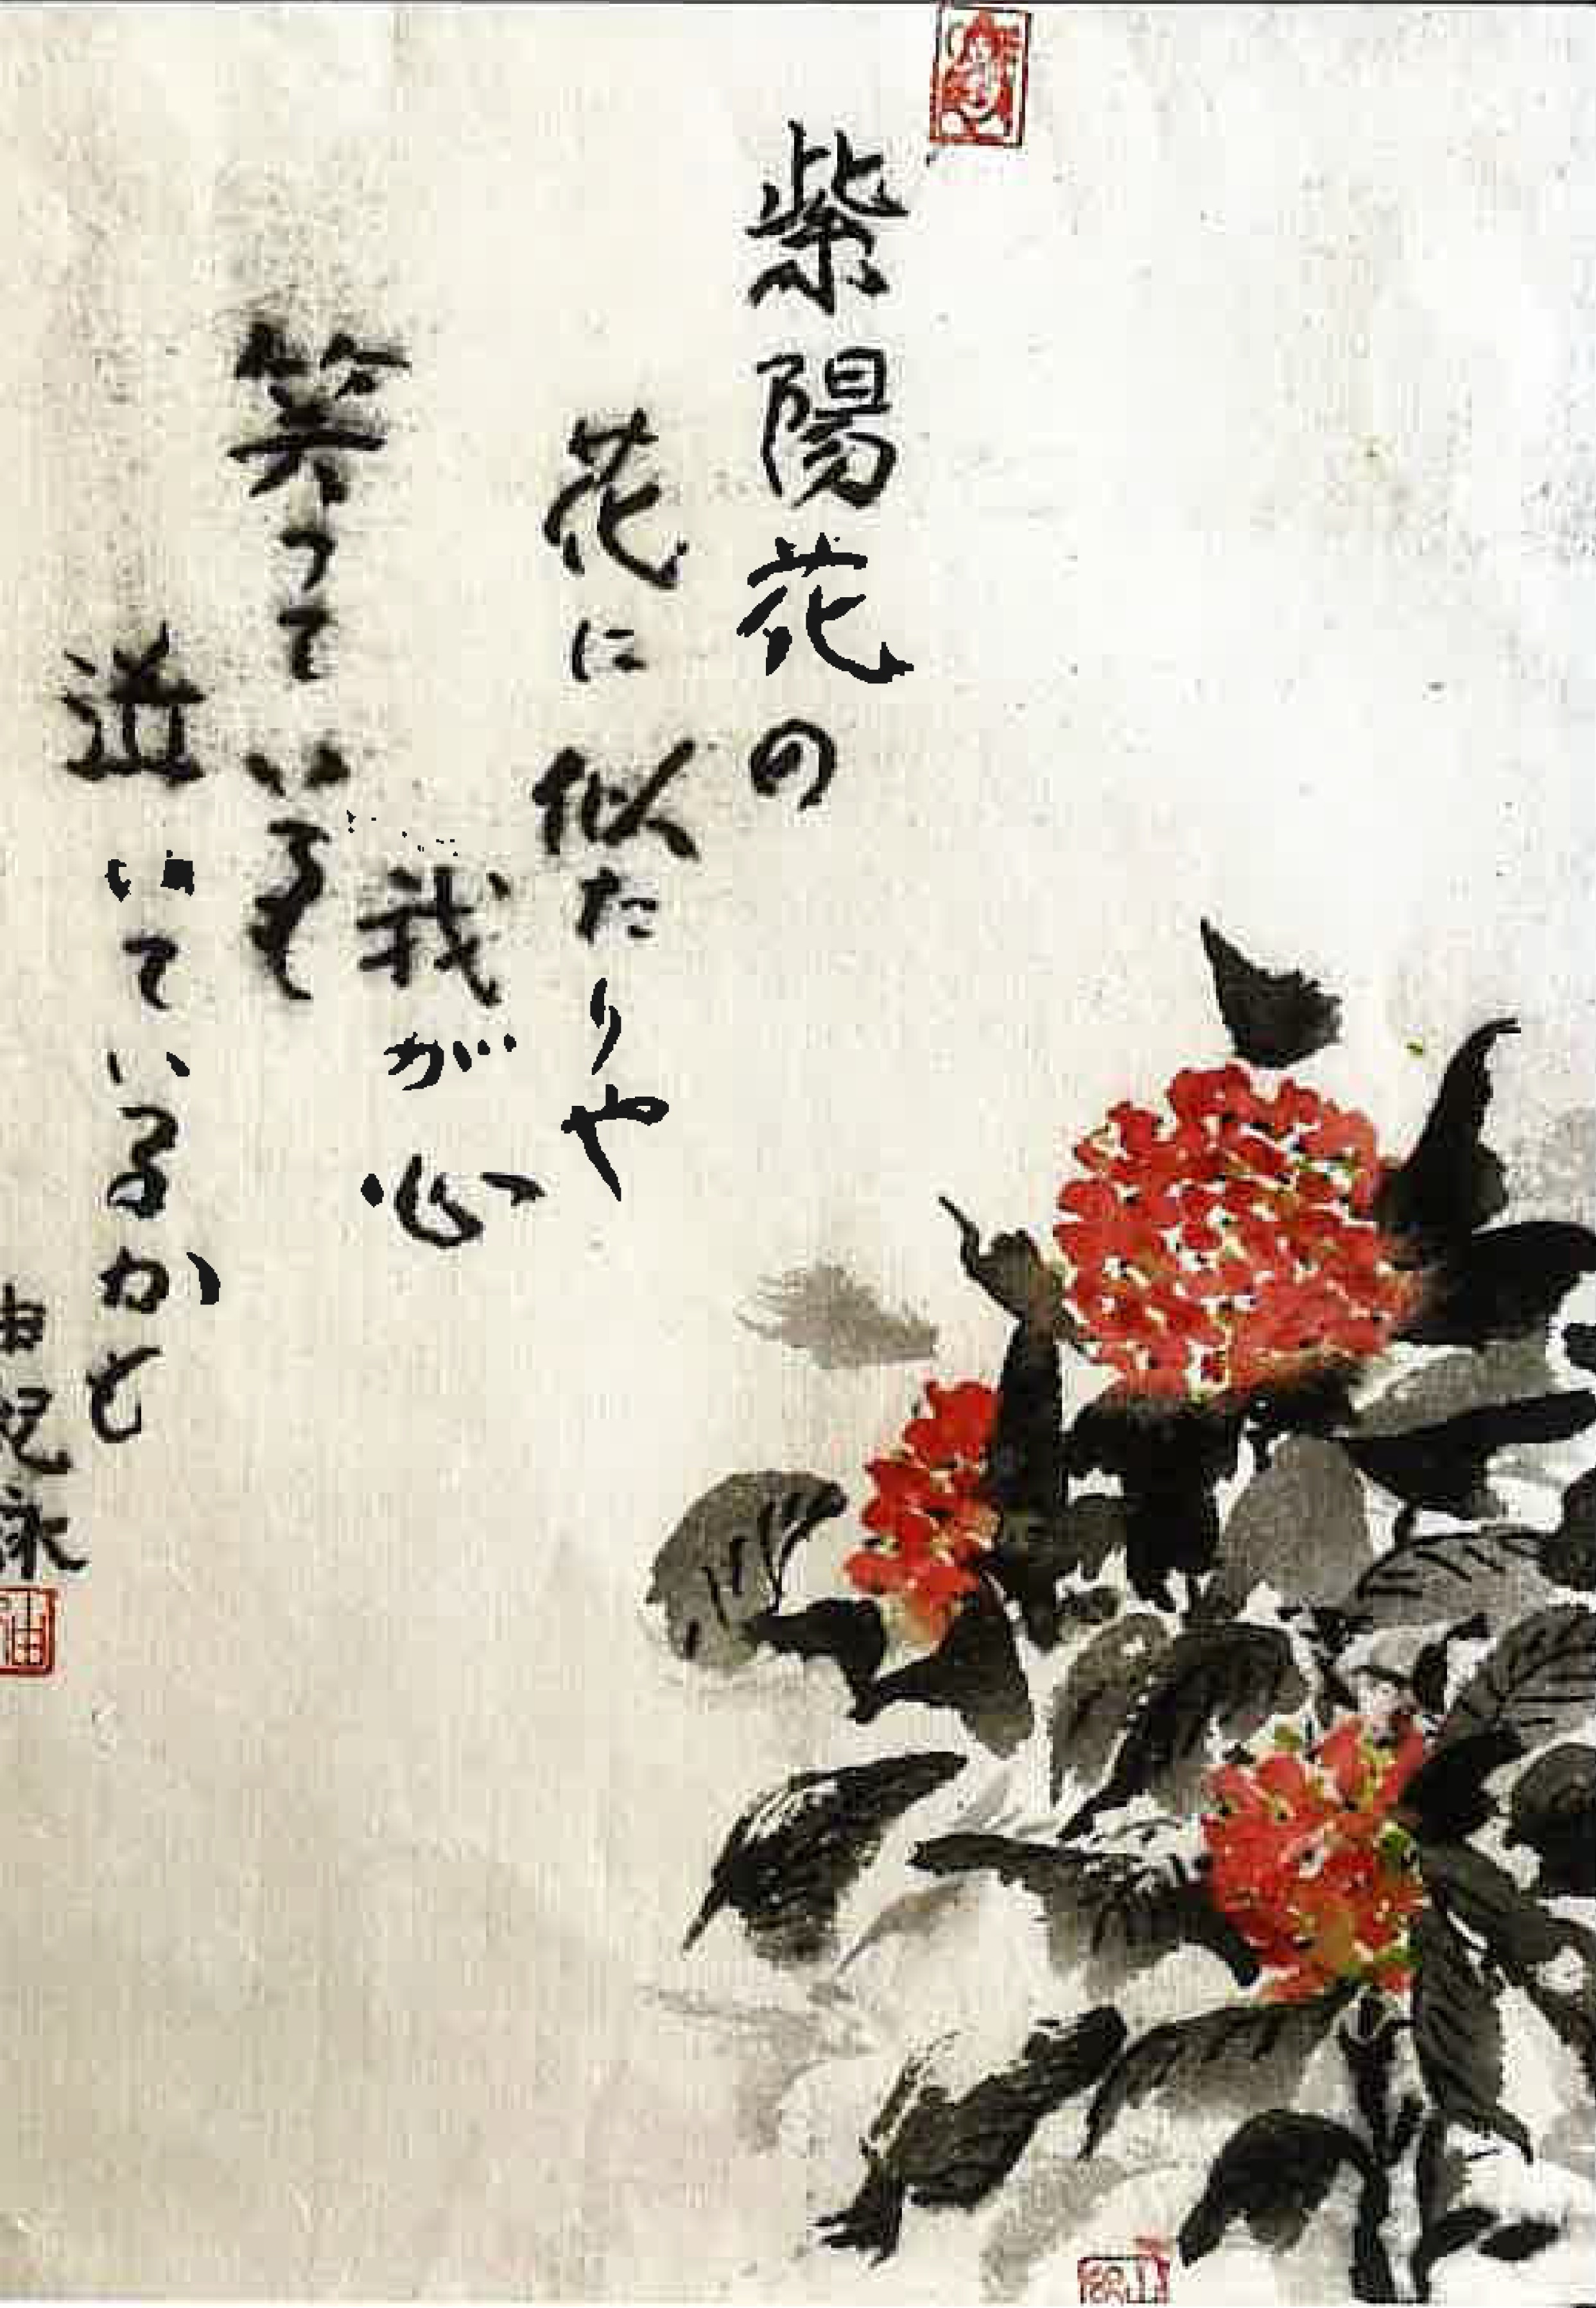 紫陽花の
花に似たりや
我が心
笑っているも
泣いているかと